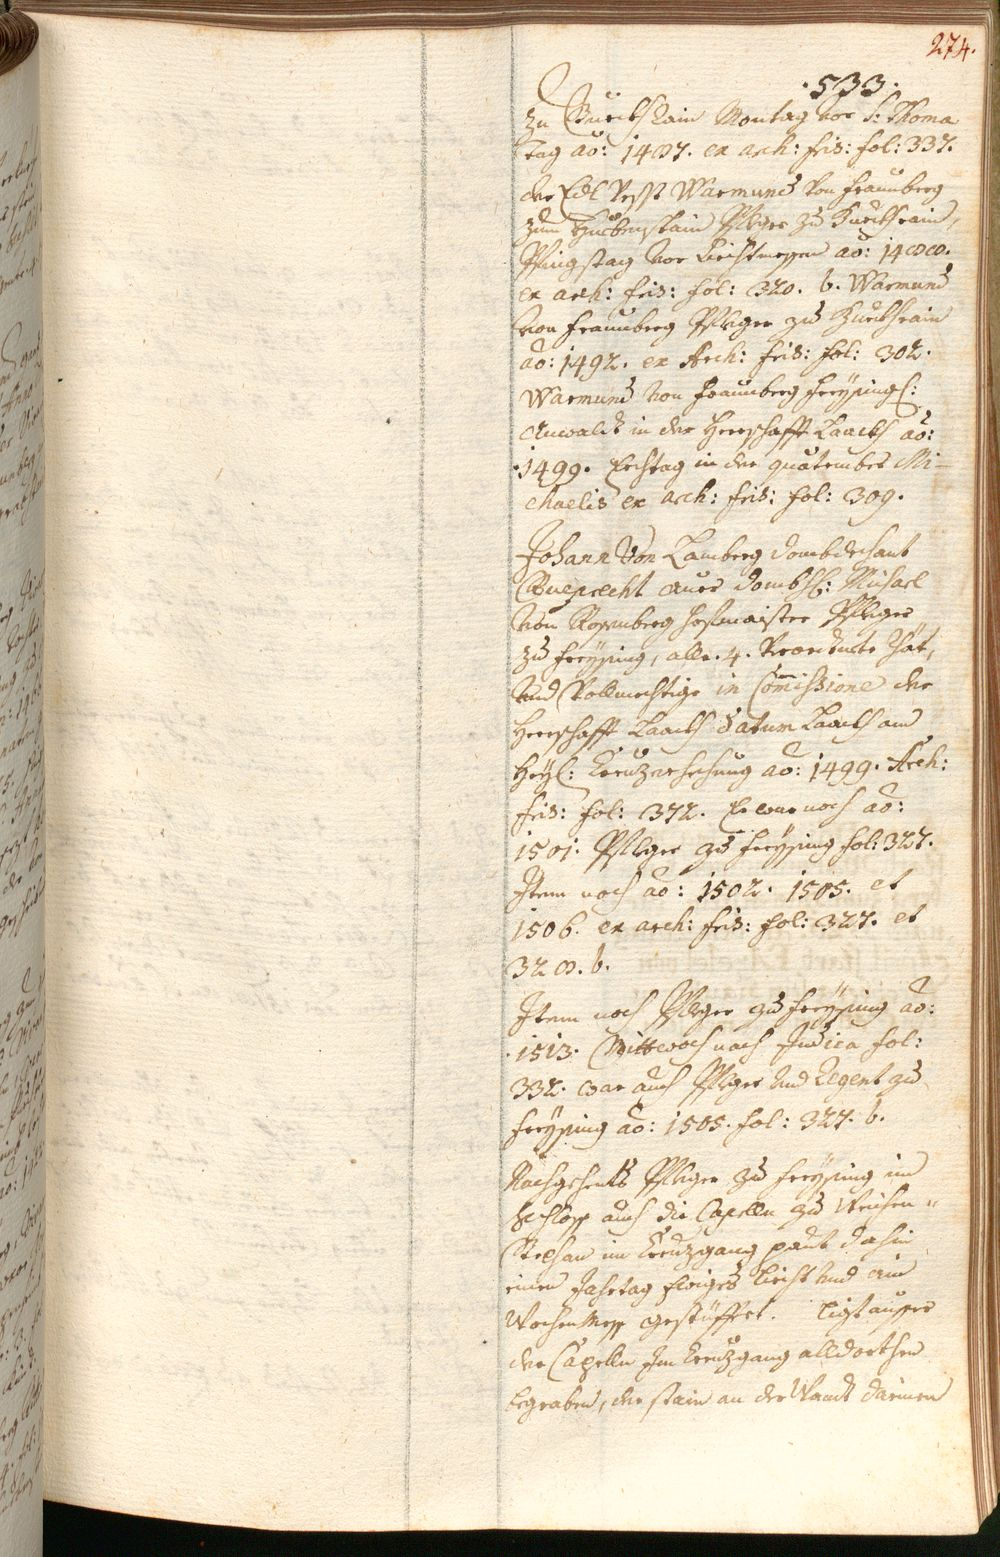 274.
.533.
zu Burckhrain Montag vor S: Thoma
tag aō: 1487. ex arch: fris: fol: 337.
der Edl Vesst Warmund von Fraunberg
zum Hubenstain Pfleger zu Burckhrain,
Pfingstag vor Liechtmessen aō: 1488.
ex arch: fris: fol: 320. b. Warmund
von Fraunberg Pfleger zu Burckhrain
aō: 1492. ex Arch: fris: fol: 302.
Warmund von Fraunberg freysingl:
Anwaldt in der Herrschafft Laackh aō:
.1499. Erchtag in der quatember Mi-
chaelis ex arch: fris: fol: 309.
Johann Von Lamberg Dombdechant
Rueprecht Auer Dombhl: Michael
Von Rosenberg Hofmaister Pfleger
zu freysing, alle .4. Verordnete Rhät,
und Vollmechtige in Com̄issione der
Herrschafft Laackh datum Laackh am
Heyl: Creuz erhechung aō: 1499. Arch:
fris: fol: 372. Er war noch aō:
1501. Pfleger zu freysing fol: 327.
Item noch aō: 1502. 1505. et
1506. ex arch: fris: fol: 327. et
328. b.
Item noch Pfleger zu freysing aō:
.1513. Mittwoch nach Judica fol:
332. war auch Pfleger und Regent zu
freysing aō: 1505. fol: 327. b.
Nachgehents Pfleger zu freysing im
Schloss auch die Capelln zu Weichen-
Stephan im Creuzgang paut dahin
einen Jahrtag Ewiges Liecht und ain
Wochen Mess gestüfftet. Ligt ausser
der Capelln Im Creuzgang alldorthen
begraben, der stain an der Wandt darinen